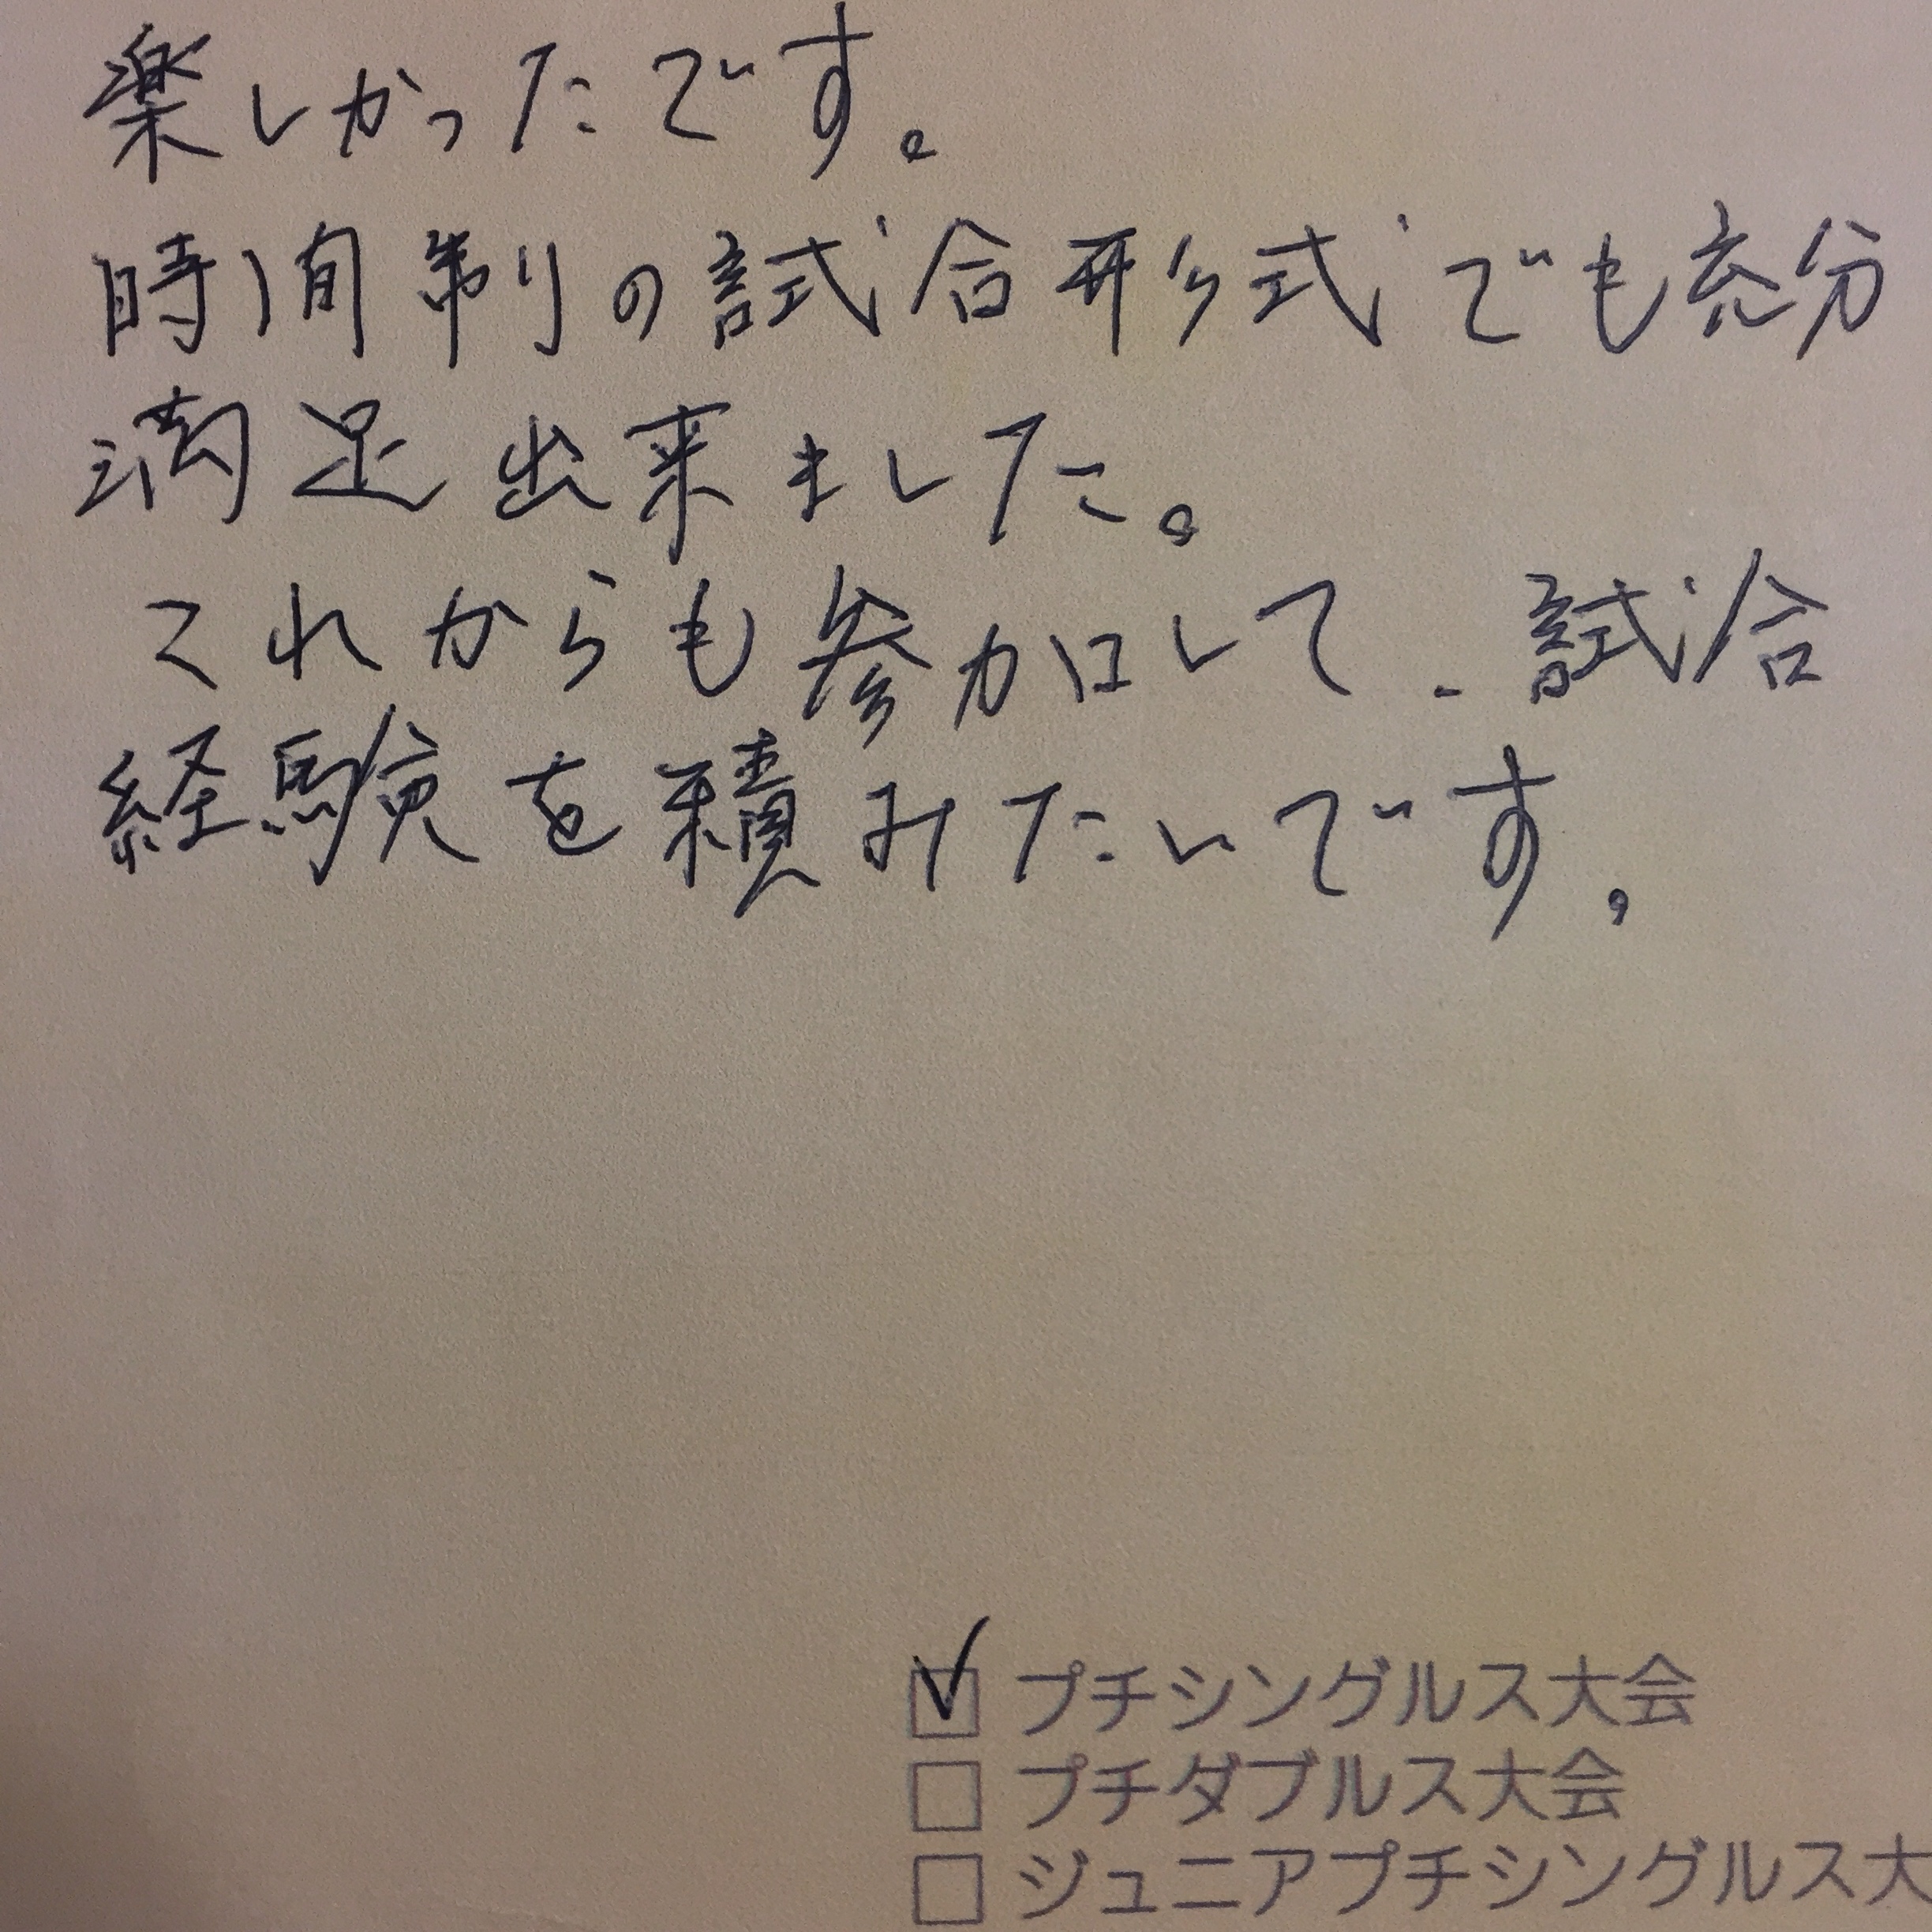 楽しかったです。
時間制の試合形式でも充分
満足出来ました。
これからも参加して、試合
経験を積みたいです。
☑ プチシングルス大会
☐ プチダブルス大会
☐ ジュニアプチシングルス大